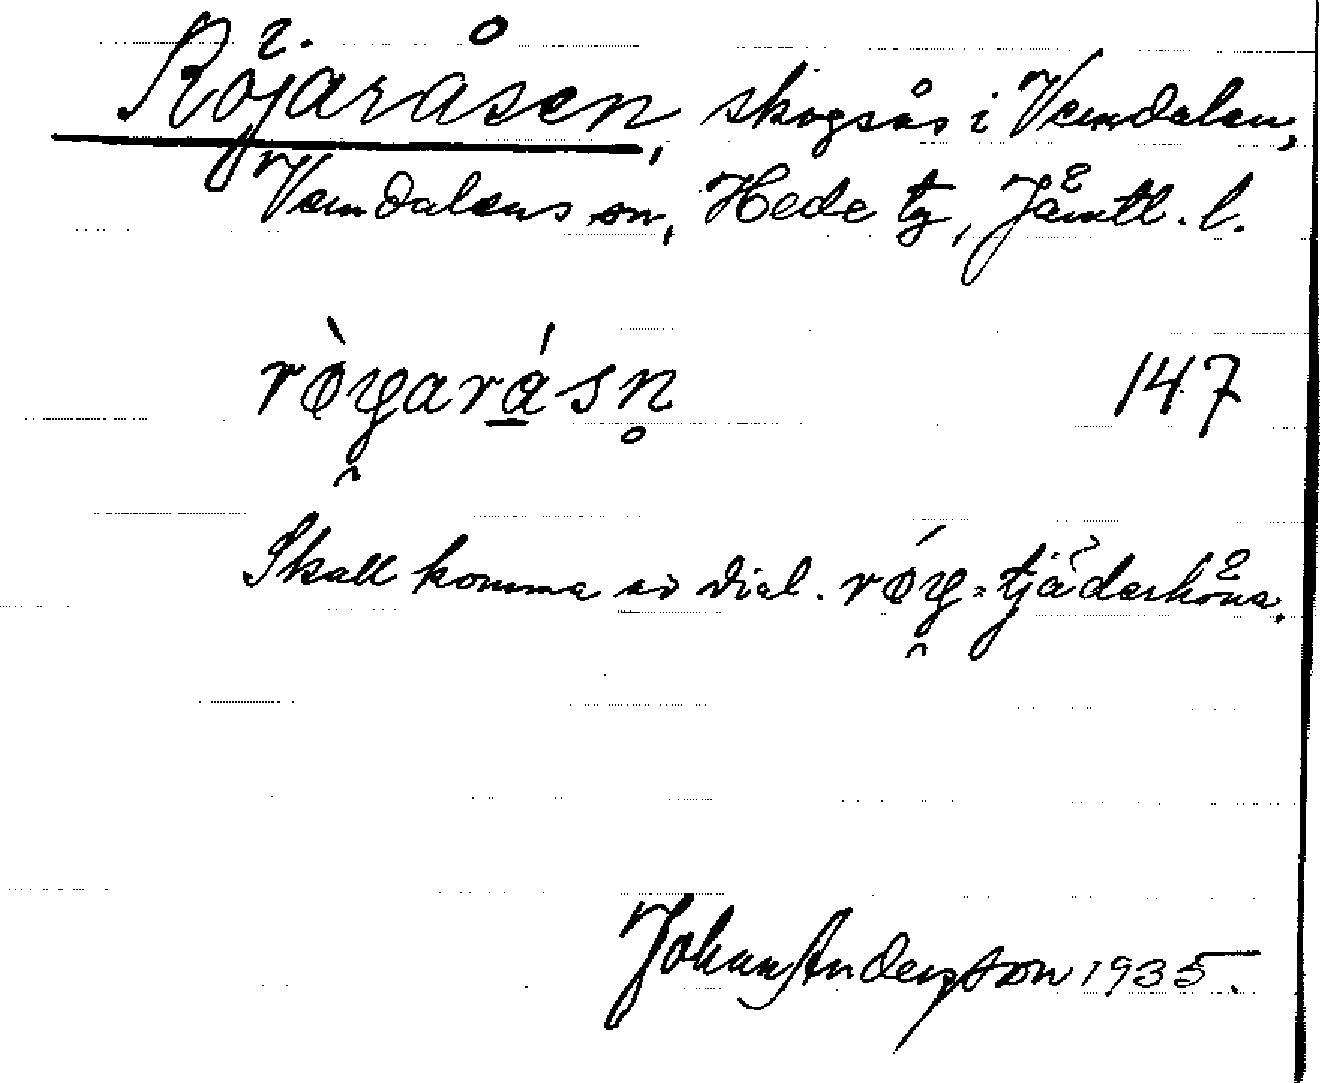 Röjaråsen, skogsås i Vemdalen,
Vemdalens sn, Hede tg, Jämtl. l.
147
Skall komma av dial. = tjäderhöna.
Johan Andersson 1935.